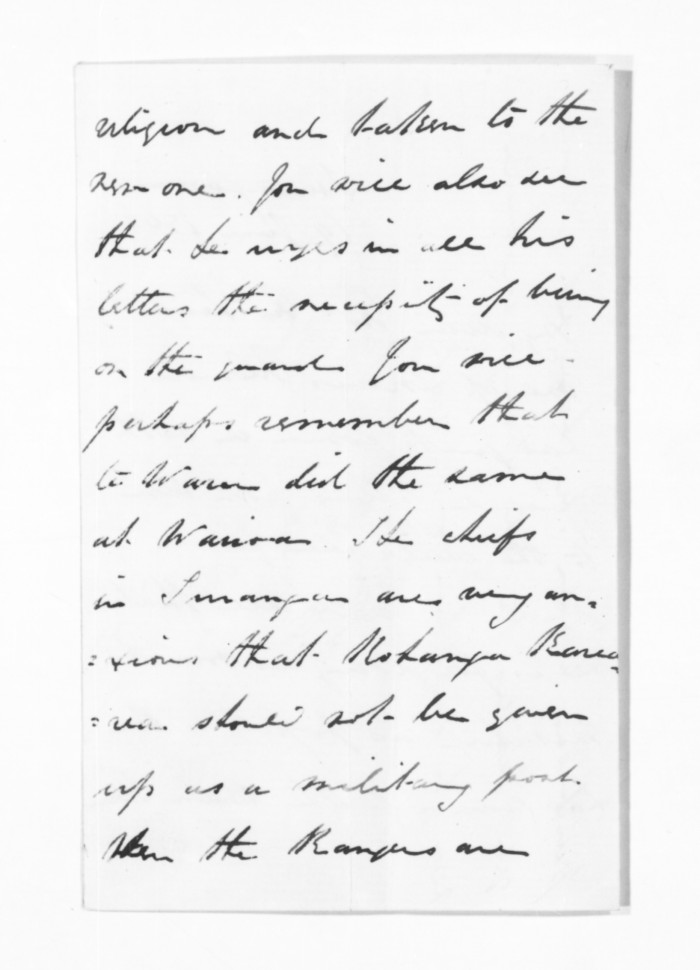 religion and taken to the
new one. You will also see
that he urges in all his
letters the necessity of being
on the guard. You will
perhaps remember that
te Waru did the same
at Wairoa. The chiefs
in Turanga are very an=
=xious that Kohanga Karea
=rea should not be given
up as a military post.
When the Rangers are